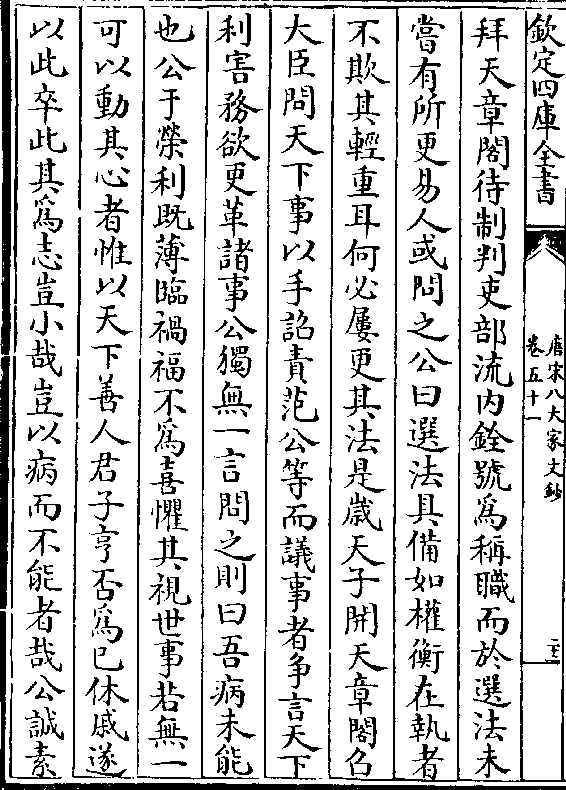 欽定四庫全書
唐宋八大家文鈔
卷五十一
拜天章閣待制判吏部流内銓號為稱職而於選法未
嘗有所更易人或問之公曰選法具備如權衡在執者
不欺其輕重耳何必屢更其法是嵗天子開天章閣召
大臣問天下事以手詔責范公等而議事者争言天下
利害務欲更革諸事公獨無一言問之則曰吾病未能
也公于榮利既薄臨禍福不為喜懼其視世事若無一
可以動其心者惟以天下善人君子亨否為已休戚遂
以此卒此其為志豈小哉豈以病而不能者哉公誠素